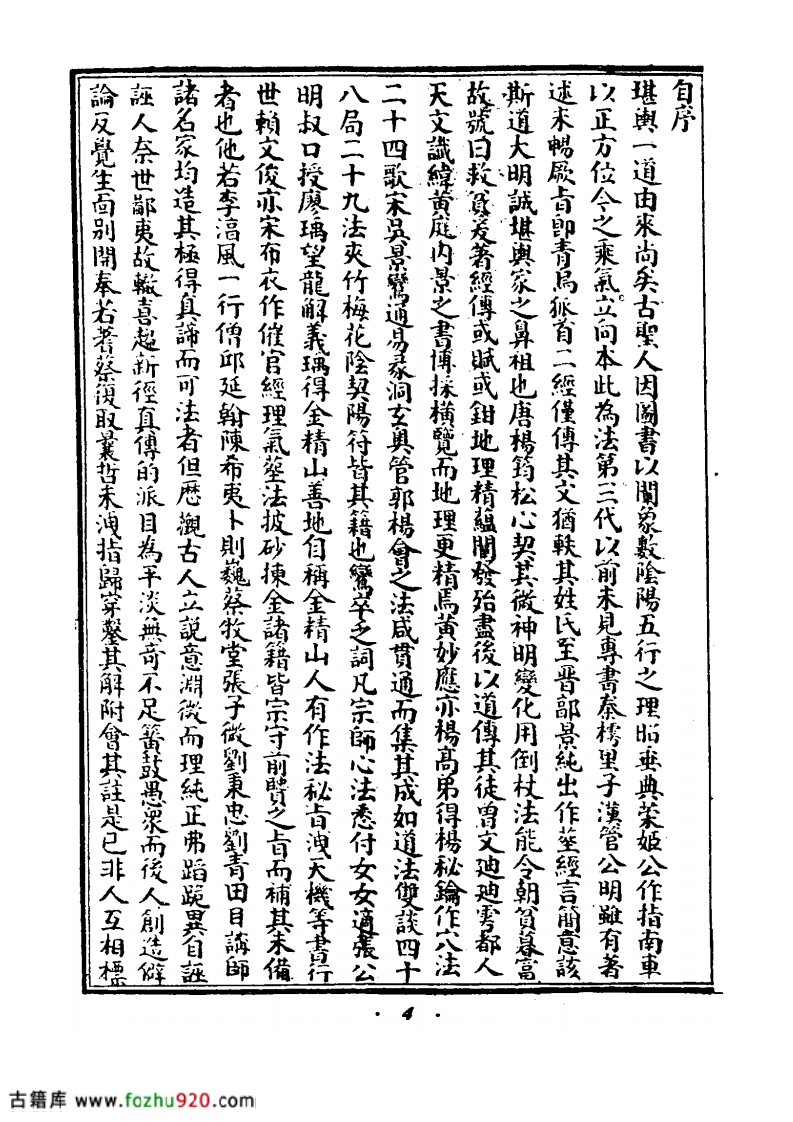 自序
堪輿一道由來尚矣古聖人因圖書以闡象數陰陽五行之理昭垂典策姬公作指南車
以正方位今之乘氣立向本此為法第三代以前未見專書秦樗里子漢管公明雖有著
述未暢厥旨卽青烏狐首二經僅傳其文猶軼其姓氏至晉郭景純出作塟經言簡意該
斯道大明誠堪輿家之鼻祖也唐楊筠松心契其微神明變化用倒杖法能令朝貧暮富
故號曰救貧爰著經傳或賦或鉗地理精蘊闡發殆盡後以道傳其徒曾文迪迪雩都人
天文讖緯黄庭内景之書博採橫覽而地理更精焉黄妙應亦楊高弟得楊秘鑰作六法
二十四歌宋吳景鸞通易彖洞玄奥管郭楊會之法咸貫通而集其成如道法雙談四十
八局二十九法夾竹梅花陰契陽符皆其籍也鸞卒之詞凡宗師心法悉付女女適張公
明叔口授廖瑀望龍解義瑀得金精山善地自稱金精山人有作法秘旨洩天機等書行
世賴文俊亦宋布衣作催官經理氣塟法披砂揀金諸籍皆宗守前賢之旨而補其未備
者也他若李淳風一行僧邱延翰陳希夷卜則巍蔡牧堂張子微劉秉忠劉青田目講師
諸名家均造其極得真諦而可法者但歷觀古人立説意淵微而理純正弗蹈詭異自誣
誣人奈世鄙夷故轍喜趨新徑真傳的派目為平淡無奇不足簧鼓愚衆而後人創造僻
論反覺生面别開奉若蓍蔡復取曩哲未洩指歸穿鑿其解附會其註是已非人互相標
· 4 ·
古籍库 www.fozhu920.com